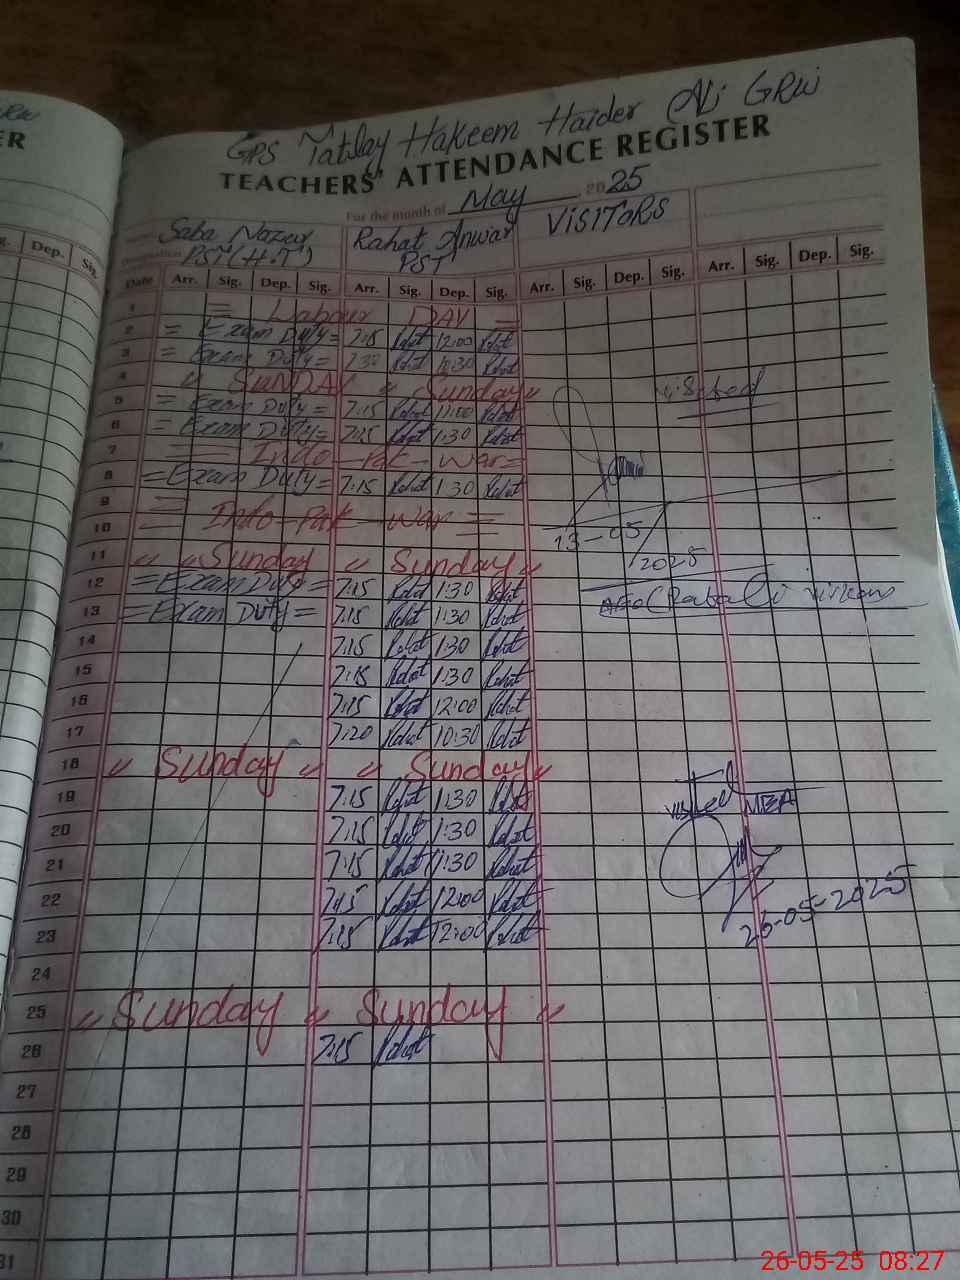 GPS Tatlay Hakeem Haider Ali GRW
TEACHERS' ATTENDANCE REGISTER
For the month of May 2025
Saba Nazer Rahat Anwar VISITORS
PST (H.T) PST
Date Arr. Sig. Dep. Sig. Arr. Sig. Dep. Sig. Arr. Sig. Dep. Sig. Arr. Sig. Dep. Sig.
1 = Labour DAY =
2 = Exam Duty = 7:15 Rahat 12:00 Rahat
3 = Exam Duty = 7:30 Rahat 10:30 Rahat
4 " SUNDAY " Sunday "
5 = Exam Duty = 7:15 Rahat 11:00 Rahat
6 = Exam Duty = 7:15 Rahat 1:30 Rahat
7 = Indo - Pak - War =
8 = Exam Duty = 7:15 Rahat 1:30 Rahat
9
10 = Indo - Pak - War =
11 " "Sunday " Sunday "
12 = Exam Duty = 7:15 Rahat 1:30 Rahat
13 = Exam Duty = 7:15 Rahat 1:30 Rahat
14 7:15 Rahat 1:30 Rahat
15 7:15 Rahat 1:30 Rahat
16 7:15 Rahat 12:00 Rahat
17 7:20 Rahat 10:30 Rahat
18 " Sunday " " Sunday "
19 7:15 Rahat 1:30 Rahat
20 7:15 Rahat 1:30 Rahat
21 7:15 Rahat 1:30 Rahat
22 7:15 Rahat 12:00 Rahat
23 7:15 Rahat 12:00 Rahat
24
25 " Sunday " Sunday "
26 7:15 Rahat
27
28
29
30
31
visited
13-05
2025
AEO
visited MEA
26-05-2025
ER
g. Dep. Sig.
26-05-25 08:27